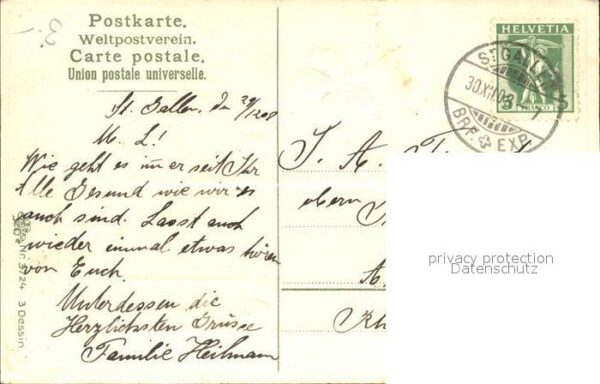 Postkarte.
Weltpostverein.
Carte postale.
Union postale universelle.
3.
HELVETIA
ST GALLEN
30.XII.08
BRF. EXP.
FRANCO
St. Gallen, den 29/12 08
M. L!
Wie geht es im̅er seit Ihr
Alle Gesund wie wir es
auch sind. Lasst auch
wieder einmal etwas hören
von Euch.
Unterdessen die
Herzlichsten Grüsse
Familie Heilmann
J. A.
A.
Rh
Nr. 3724 3 Dessin
privacy protection
Datenschutz